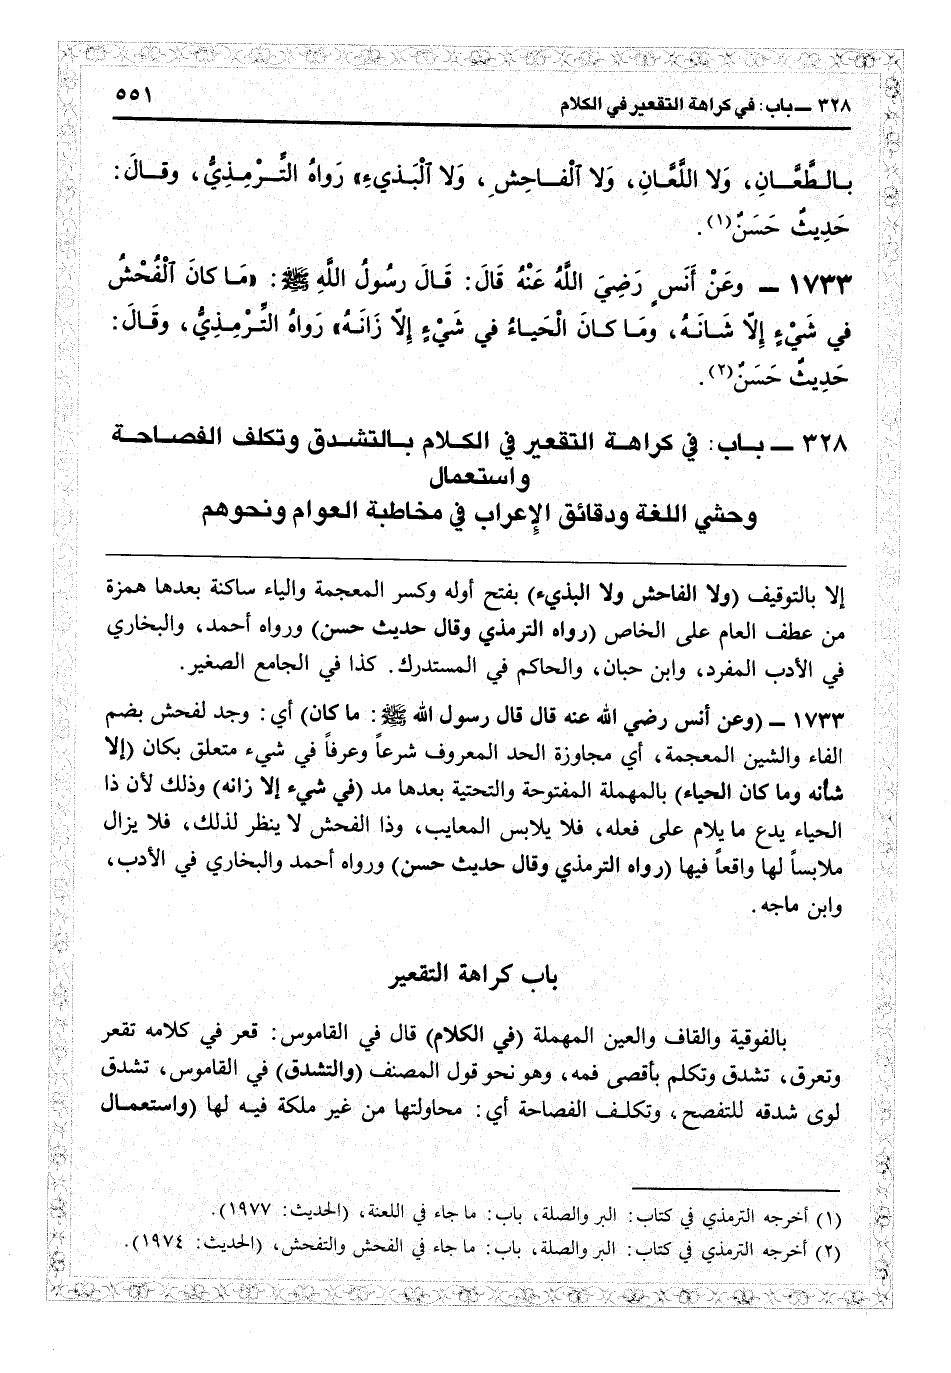 ٣٢٨ ـ باب: في كراهة التقعير في الكلام
٥٥١
بـالـطَّعَّـــانِ، وَلا اللَّعَّـانِ، وَلا ٱلْفـــاحِشِ، وَلا ٱلْبَـذيءِ» رَواهُ التِّــرْمِـذِيُّ، وقــالَ:
حَدِيثٌ حَسَنٌ(١).
١٧٣٣ ـ وعَنْ أَنَسٍ رَضِيَ اللَّهُ عَنْهُ قَالَ: قَـالَ رسُولُ اللَّهِ ﷺ: «مَـا كانَ ٱلْفُحْشُ
في شَيْءٍ إِلّا شَـانَـهُ، ومَـا كـانَ الْحَيـاءُ في شَيْءٍ إِلّا زَانَـهُ» رَواهُ التِّـرْمِـذِيُّ، وقَـالَ:
حَدِيثٌ حَسَنٌ(٢).
٣٢٨ ـ بـاب: في كراهـة التقعير في الكـلام بـالتشـدق وتكلف الفصـاحـة
واستعمال
وحشي اللغة ودقائق الإِعراب في مخاطبة العوام ونحوهم
إلا بالتوقيف (ولا الفاحش ولا البذيء) بفتح أوله وكسر المعجمة والياء ساكنة بعدها همزة
من عطف العام على الخاص (رواه الترمذي وقال حديث حسن) ورواه أحمد، والبخاري
في الأدب المفرد، وابن حبان، والحاكم في المستدرك. كذا في الجامع الصغير.
١٧٣٣ ـ (وعن أنس رضي الله عنه قال قال رسول الله ﷺ: ما كان) أي: وجد لفحش بضم
الفاء والشين المعجمة، أي مجاوزة الحد المعروف شرعاً وعرفاً في شيء متعلق بكان (إلا
شأنه وما كان الحياء) بالمهملة المفتوحة والتحتية بعدها مد (في شيء إلا زانه) وذلك لأن ذا
الحياء يدع ما يلام على فعله، فلا يلابس المعايب، وذا الفحش لا ينظر لذلك، فلا يزال
ملابساً لها واقعاً فيها (رواه الترمذي وقال حديث حسن) ورواه أحمد والبخاري في الأدب،
وابن ماجه.
باب كراهة التقعير
بالفوقية والقاف والعين المهملة (في الكلام) قال في القاموس: قعر في كلامه تقعر
وتعرق، تشدق وتكلم بأقصى فمه، وهو نحو قول المصنف (والتشدق) في القاموس، تشدق
لوى شدقه للتفصح، وتكلـف الفصاحة أي: محاولتها من غير ملكة فيـه لها (واستعمـال
(١) أخرجه الترمذي في كتاب: البر والصلة، باب: ما جاء في اللعنة، (الحديث: ١٩٧٧).
(٢) أخرجه الترمذي في كتاب: البر والصلة، باب: ما جاء في الفحش والتفحش، (الحديث: ١٩٧٤).